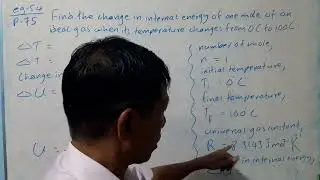 eg-54
P-75
Find the change in internal energy of one mole of an
ideal gas when its temperature changes from 0C to 100C
ΔT =
ΔT =
Change in
ΔU =
U =
number of mole,
n = 1
initial temperature,
T = 0C
final temperature,
T = 100C
universal gas constant,
R = 8.3143 J mol K
in internal energy,